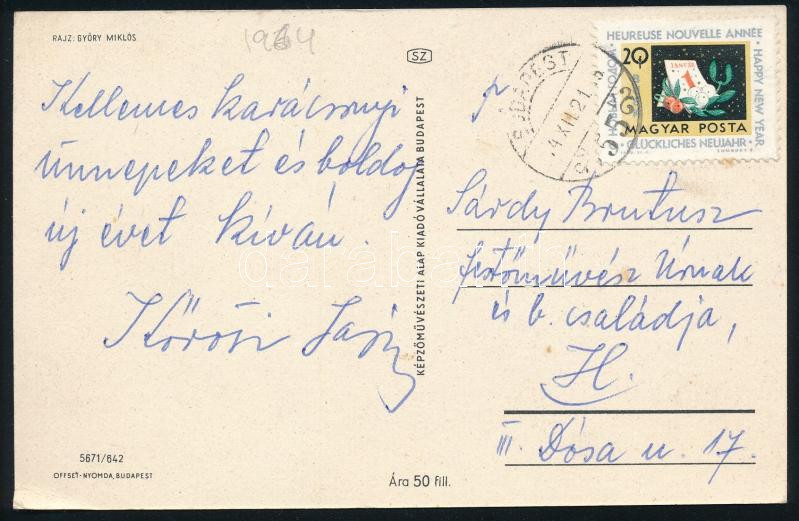 RAJZ: GYŐRY MIKLÓS
1964
SZ
Kellemes karácsonyi
ünnepeket és boldog
új évet kíván.
Kőrösi
5671/642
OFFSET-NYOMDA, BUDAPEST
KÉPZŐMŰVÉSZETI ALAP KIADÓ VÁLLALATA BUDAPEST
Ára 50 fill.
BUDAPEST
HEUREUSE NOUVELLE ANNÉE
HAPPY NEW YEAR
GLÜCKLICHES NEUJAHR
20
JANUÁR
1
MAGYAR POSTA
Sárdy Brutusz
festőművész Úrnak
és b. családja,
H.
III. Dósa u. 17.
darabanth